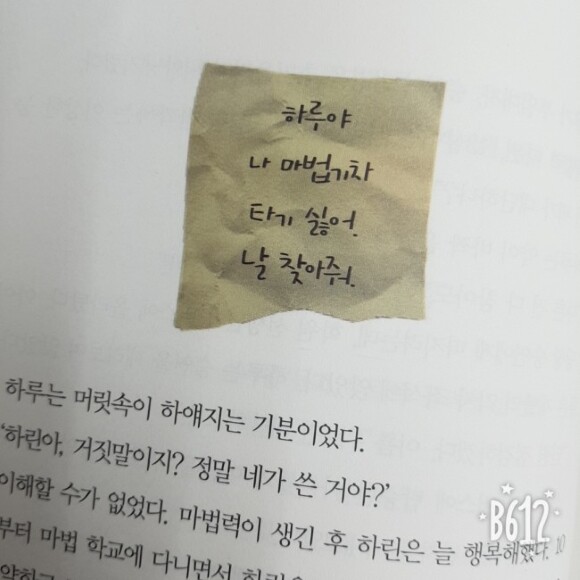 하루야
나 마법기차
타기 싫어.
날 찾아줘.
하루는 머릿속이 하얘지는 기분이었다.
‘하린아, 거짓말이지? 정말 네가 쓴 거야?’
이해할 수가 없었다. 마법력이 생긴 후 하린은 늘 행복해했다. 10
부터 마법 학교에 다니면서 하린
B612